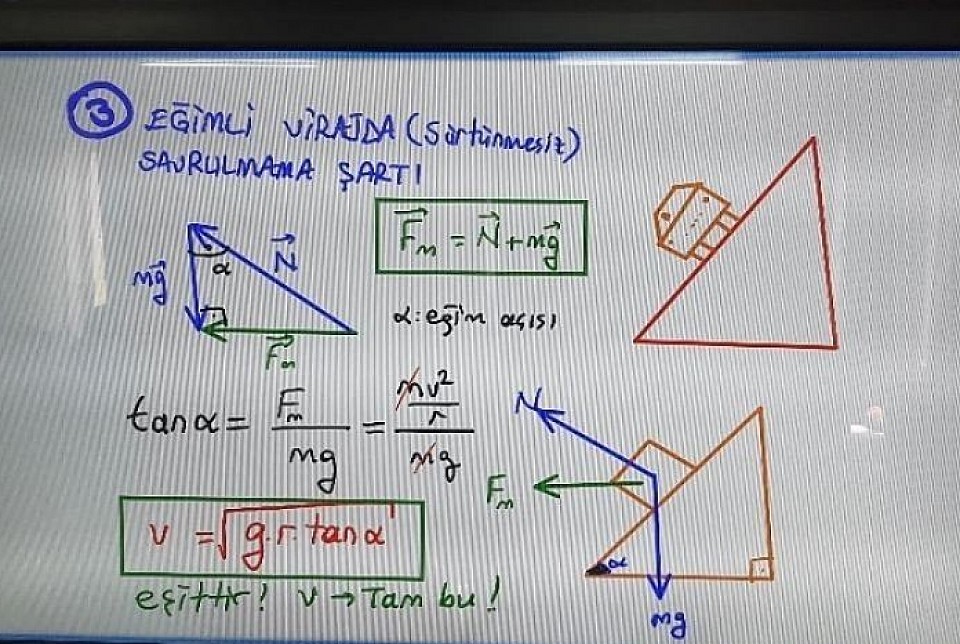 3 EĞİMLİ VİRAJDA (Sürtünmesiz)
SAVRULMAMA ŞARTI
F⃗m = N⃗ + mg⃗
mg⃗ α N⃗
F⃗m
α: eğim açısı
tanα = Fm/mg = (mv²/r)/mg
v = √g.r.tanα
eşittir! v → Tam bu!
N
Fm
α
mg